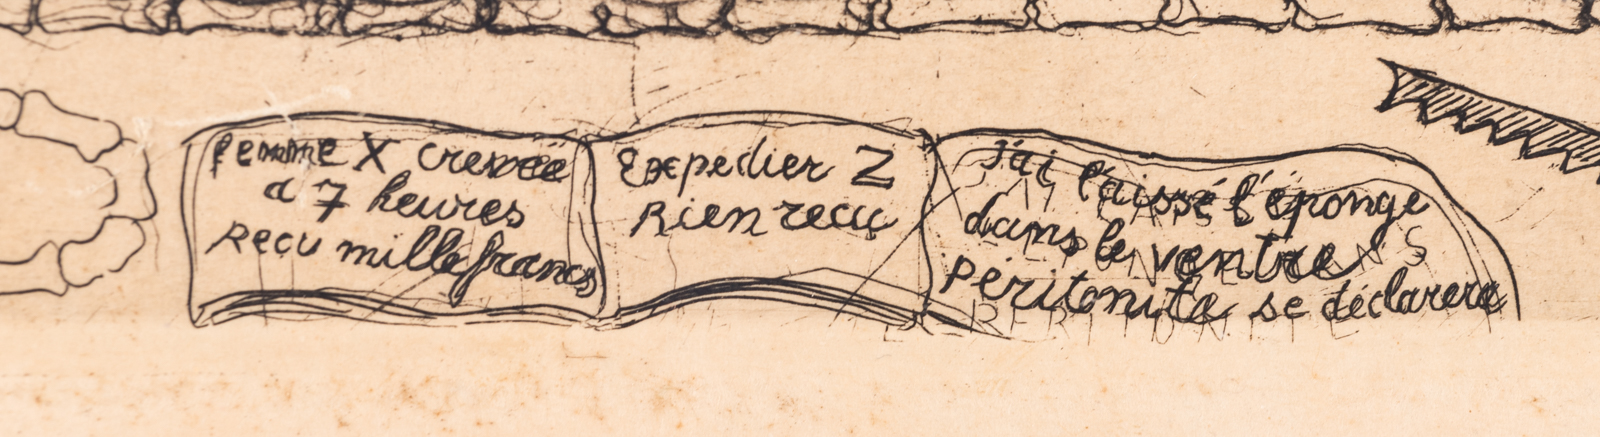 femme X crevée
a 7 heures
Recu mille francs
Expedier Z
Rien recu
J'ai laissé l'éponge
dans le ventre
Péritonite se déclarera